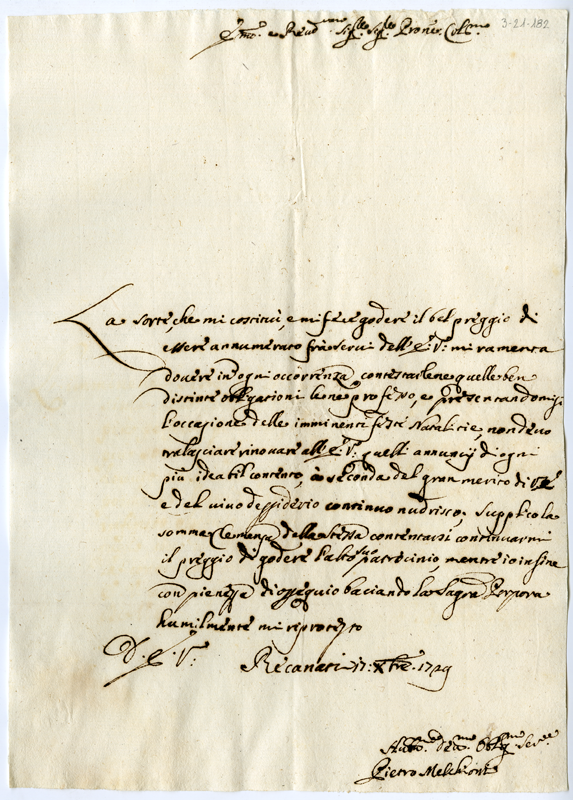 3-21-182
Em.o e Reud.mo Sig.re Sig.re Prone Col.mo
La sorte, che mi costituì, e mi fece godere il bel preggio di
essere annumerato frà servi dell'E.V. mi ramenta
dovere in ogni occorrenza contestarlene quelle ben
distinte obligationi lene professo, e presentandomisi
l'occasione delle imminenti feste Natalitie, non devo
tralasciare rinovare all'E.V. quelli annuncij di ogni
più ideabil contento, à seconda del gran merito di
e del vivo desiderio continuo nudrisco. Supplico la
somma Clemenza della stessa contentarsi, continuarmi
il preggio di godere l'alto suo patrocinio, mentre io in fine
con pienezza di ossequio baciando la Sagra Porpora
humilmente mi riprotesto
D. E. V.
Recanati 17. Xbre. 1729
Hum.o Dev.mo Obl.mo Ser.re
Pietro Melchiorri